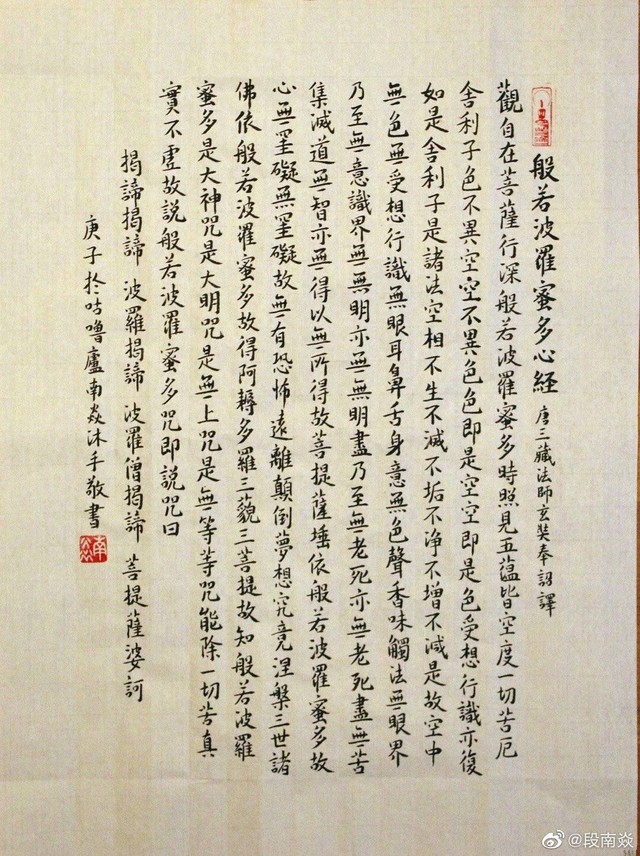 般若波羅蜜多心經 唐三藏法師玄奘奉詔譯
觀自在菩薩行深般若波羅蜜多時照見五蘊皆空度一切苦厄
舍利子色不異空空不異色色即是空空即是色受想行識亦復
如是舍利子是諸法空相不生不滅不垢不淨不增不減是故空中
無色無受想行識無眼耳鼻舌身意無色聲香味觸法無眼界
乃至無意識界無無明亦無無明盡乃至無老死亦無老死盡無苦
集滅道無智亦無得以無所得故菩提薩埵依般若波羅蜜多故
心無罣礙無罣礙故無有恐怖遠離顛倒夢想究竟涅槃三世諸
佛依般若波羅蜜多故得阿耨多羅三藐三菩提故知般若波羅
蜜多是大神咒是大明咒是無上咒是無等等咒能除一切苦真
實不虛故說般若波羅蜜多咒即說咒曰
揭諦揭諦 波羅揭諦 波羅僧揭諦 菩提薩婆訶
庚子於咕嚕廬南焱沐手敬書
南焱
@段南焱